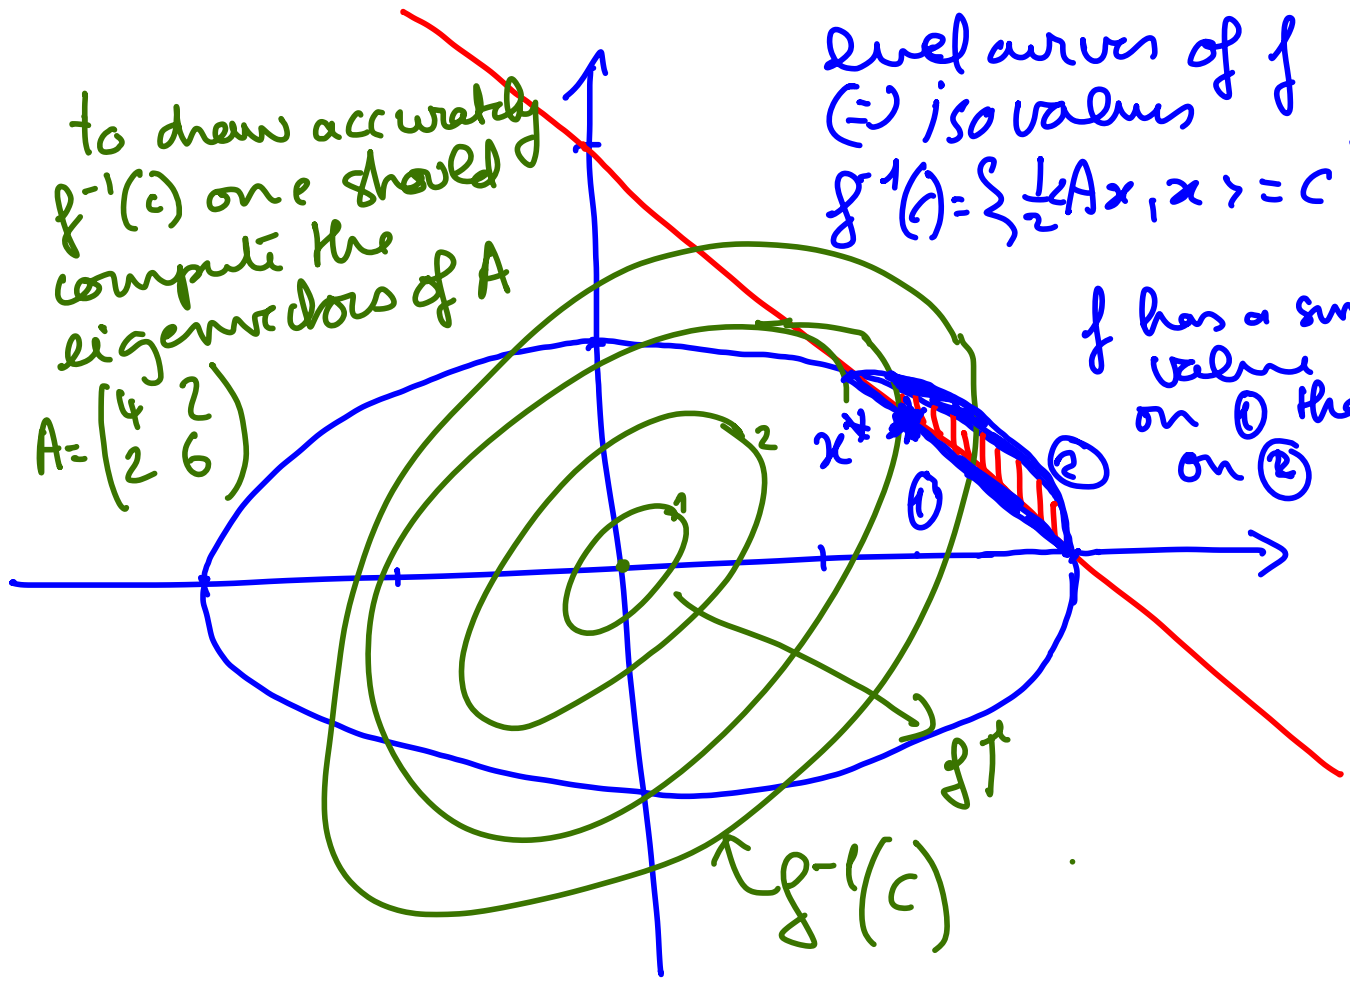 to draw accurately
f⁻¹(c) one should
compute the
eigenvectors of A
A = (4 2
2 6)
level curves of f
(=) isovalues
f⁻¹(c) = { ½<Ax, x> = C
f has a sm
value
on ① the
on ②
1
2
x*
①
②
f↑
f⁻¹(C)